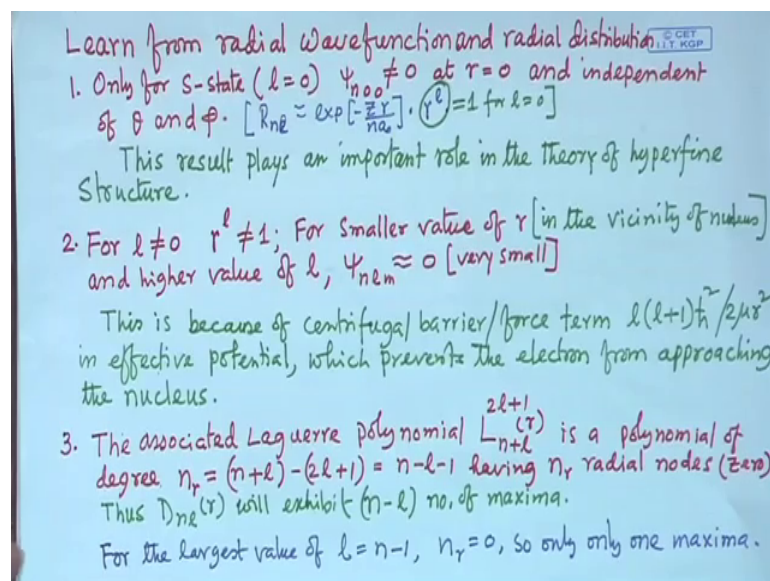 Learn from radial wavefunction and radial distribution
© CET
I.I.T. KGP
1. Only for s-state (l=0) Ψₙ₀₀ ≠ 0 at r=0 and independent
of θ and φ. [Rₙₗ ≈ exp[-Zr/na₀] · rˡ = 1 for l=0]
This result plays an important role in the theory of hyperfine
Structure.
2. For l≠0 rˡ ≠ 1; For smaller value of r [in the vicinity of nucleus]
and higher value of l, Ψₙₗₘ ≈ 0 [very small]
This is because of centrifugal barrier/force term l(l+1)ħ²/2μr²
in effective potential, which prevents the electron from approaching
the nucleus.
3. The associated Laguerre polynomial L_{n+l}^{2l+1}(r) is a polynomial of
degree nᵣ = (n+l)-(2l+1) = n-l-1 having nᵣ radial nodes (zero)
Thus Dₙₗ(r) will exhibit (n-l) no. of maxima.
For the largest value of l = n-1, nᵣ=0, so only only one maxima.